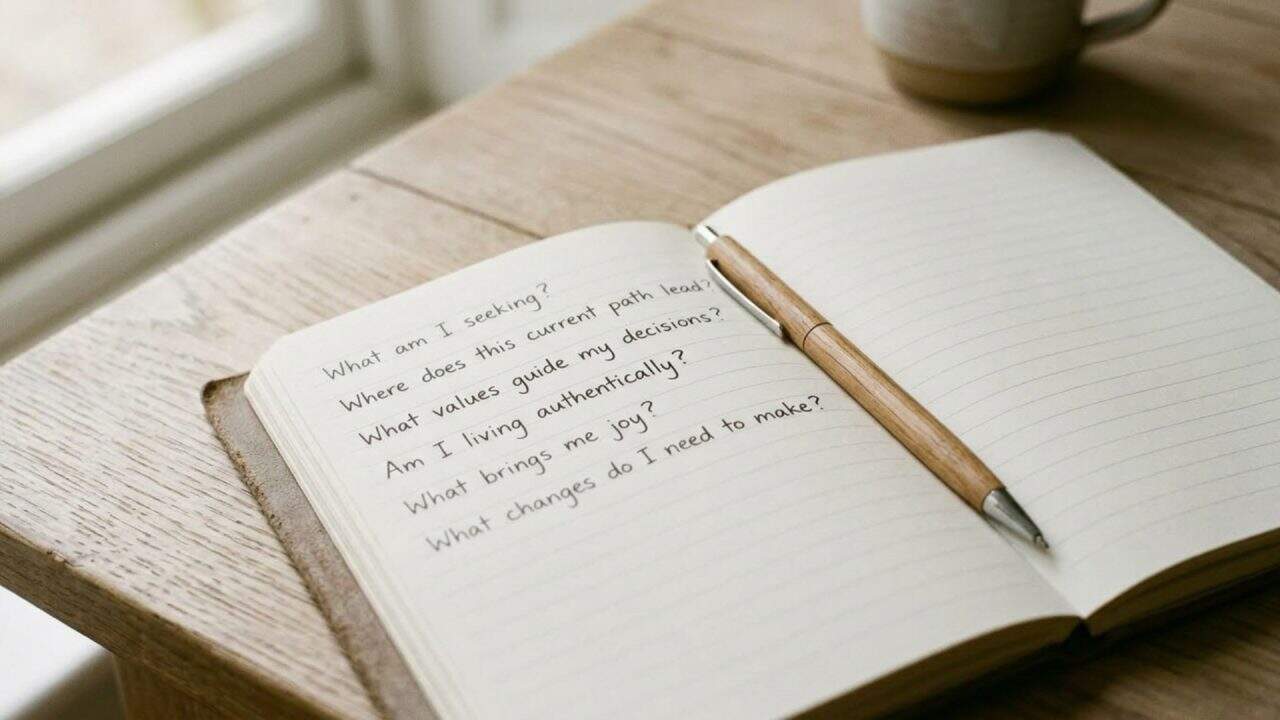 What am I seeking?
Where does this current path lead?
What values guide my decisions?
Am I living authentically?
What brings me joy?
What changes do I need to make?